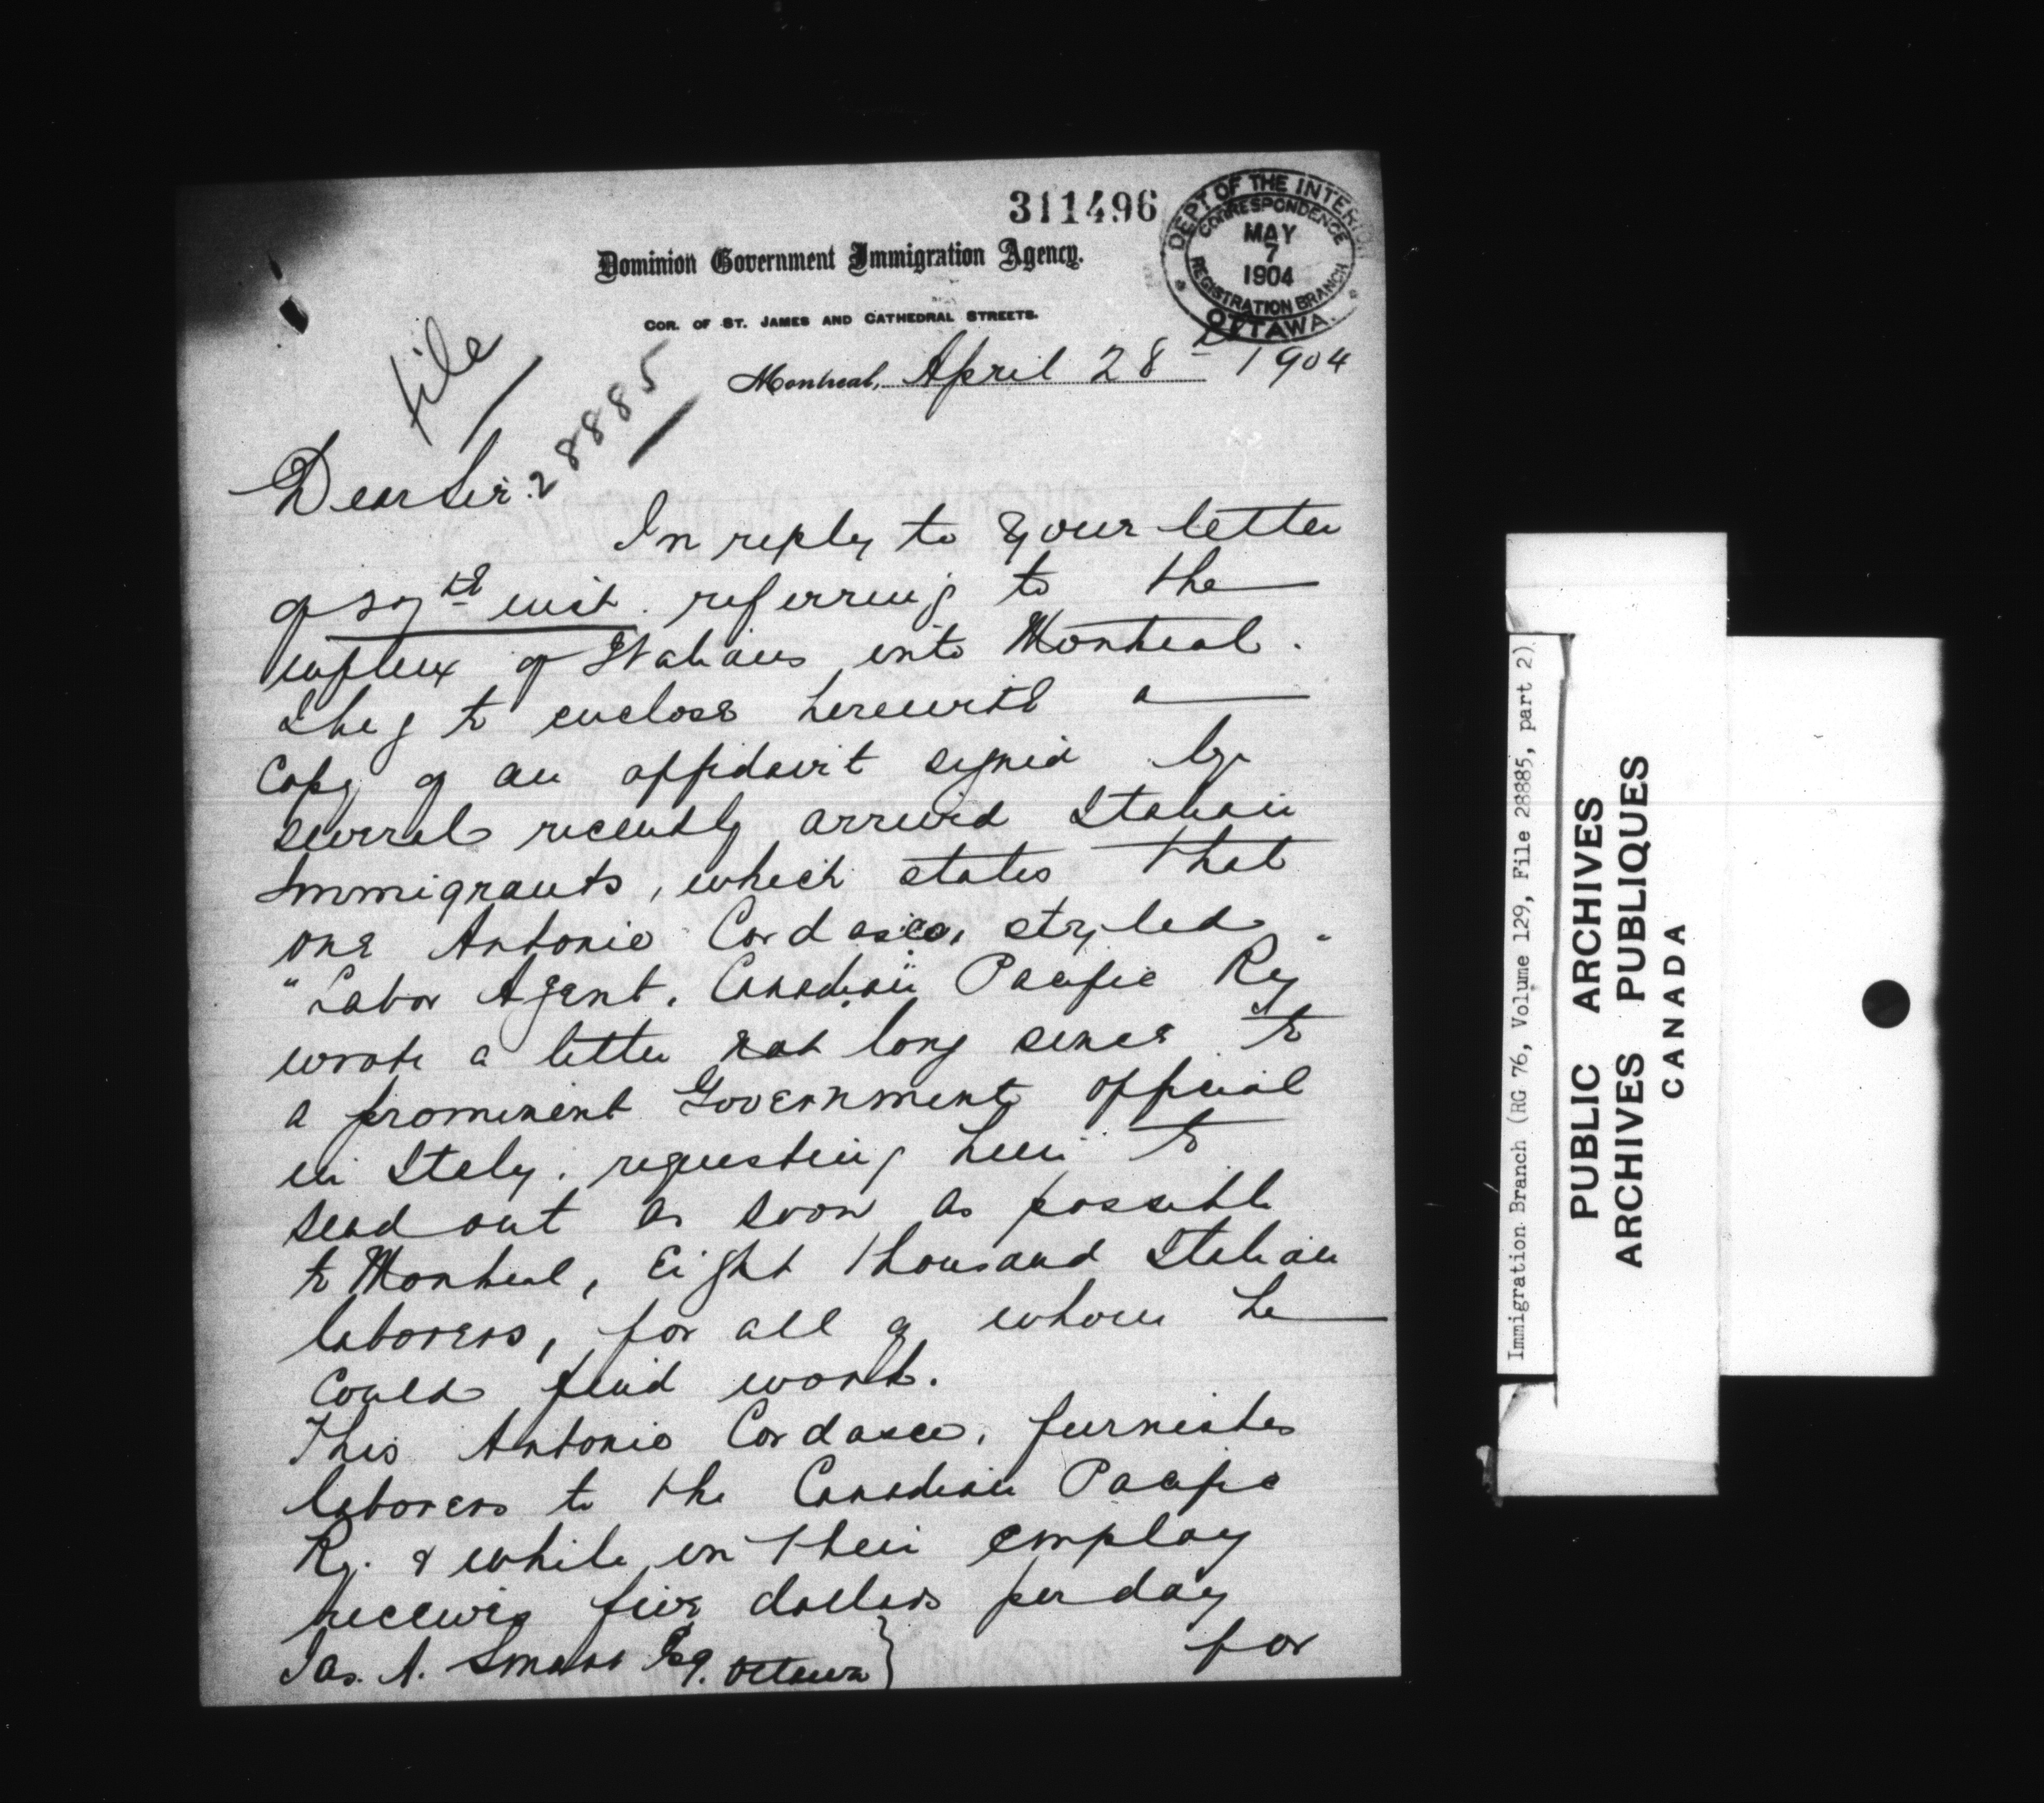 311496
DEPT OF THE INTERIOR
CORRESPONDENCE
MAY
7
1904
REGISTRATION BRANCH
OTTAWA.
Dominion Government Immigration Agency.
COR. OF ST. JAMES AND CATHEDRAL STREETS.
file
28885
Montreal, April 28th 1904
Dear Sir.
In reply to your letter
of inst. referring to the
influx of Italians into Montreal.
I beg to enclose herewith a
Copy of an affidavit signed by
several recently arrived Italian
Immigrants, which states that
one Antonio Cordasco, styled
"Labor Agent. Canadian Pacific Ry
wrote a letter not long since to
a prominent Government official
in Italy. requesting him to
send out as soon as possible
to Montreal, Eight thousand Italian
laborers, for all of whom he
could find work.
This Antonio Cordasco, furnishes
laborers to the Canadian Pacific
Ry. & while in their employ
receives five dollars per day
for
Jas. A. Smart Esq. Ottawa }
Immigration Branch (RG 76, Volume 129, File 28885, part 2)
PUBLIC ARCHIVES
ARCHIVES PUBLIQUES
CANADA